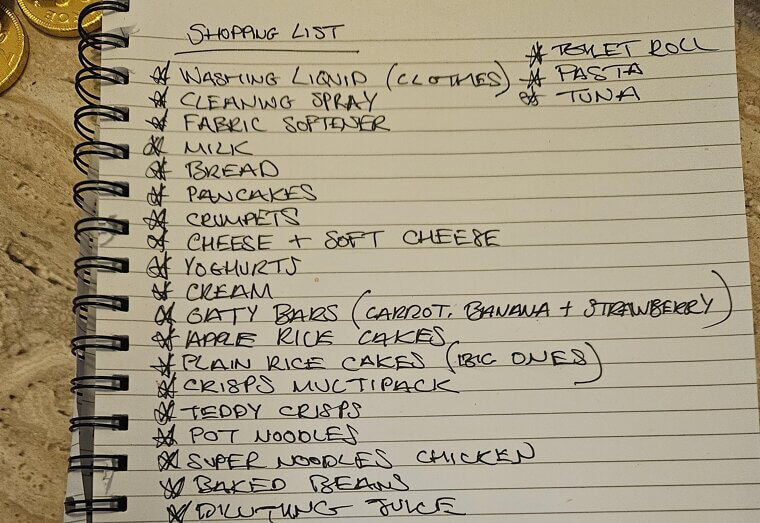 SHOPPING LIST
* WASHING LIQUID (CLOTHES)
* CLEANING SPRAY
* FABRIC SOFTENER
* MILK
* BREAD
* PANCAKES
* CRUMPETS
* CHEESE + SOFT CHEESE
* YOGHURTS
* CREAM
* OATY BARS (CARROT, BANANA + STRAWBERRY)
* APPLE RICE CAKES
* PLAIN RICE CAKES (BIG ONES)
* CRISPS MULTIPACK
* TEDDY CRISPS
* POT NOODLES
* SUPER NOODLES CHICKEN
* BAKED BEANS
* DILUTING JUICE
* TOILET ROLL
* PASTA
* TUNA